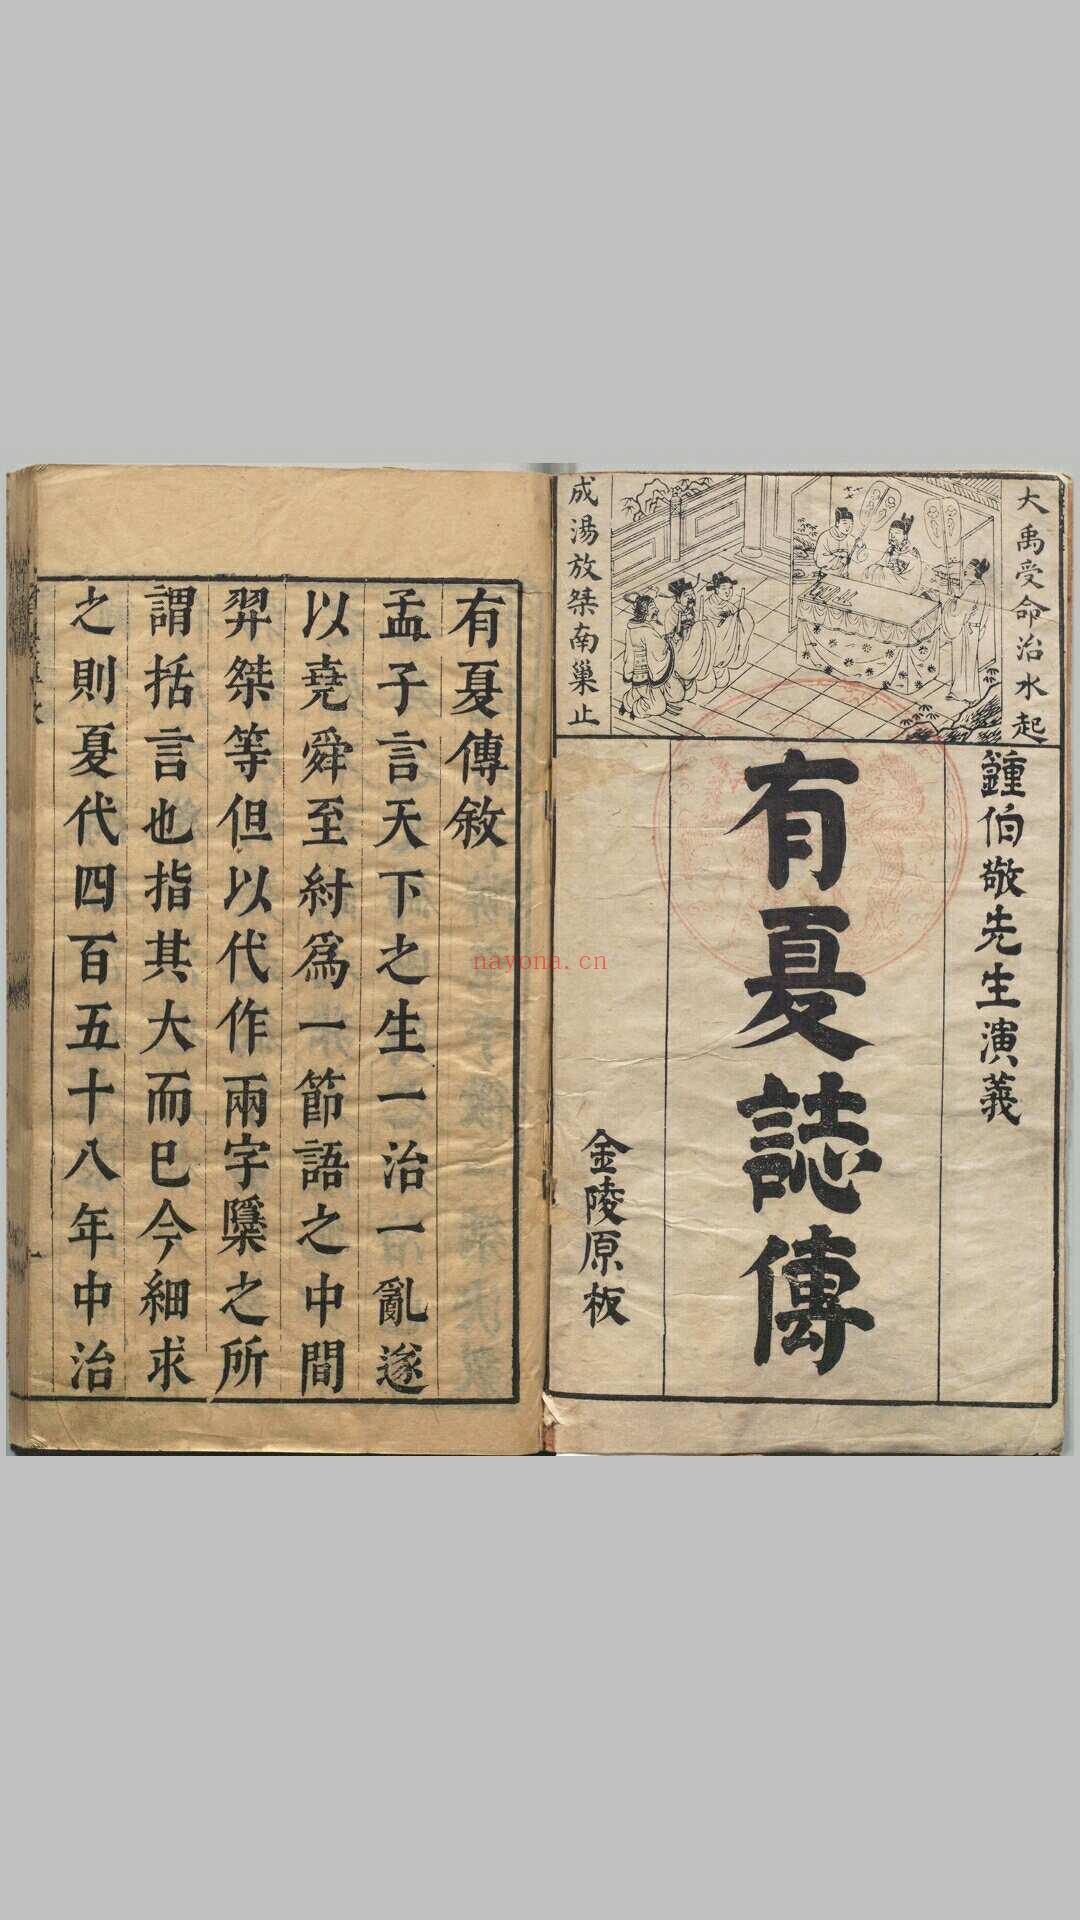 大禹受命治水起
成湯放桀南巢止
鍾伯敬先生演義
有夏誌傳
金陵原板
有夏傳敘
孟子言天下之生一治一亂遂
以堯舜至紂爲一節語之中間
羿桀等但以代作兩字檃之所
謂括言也指其大而已今細求
之則夏代四百五十八年中治
nayona.cn